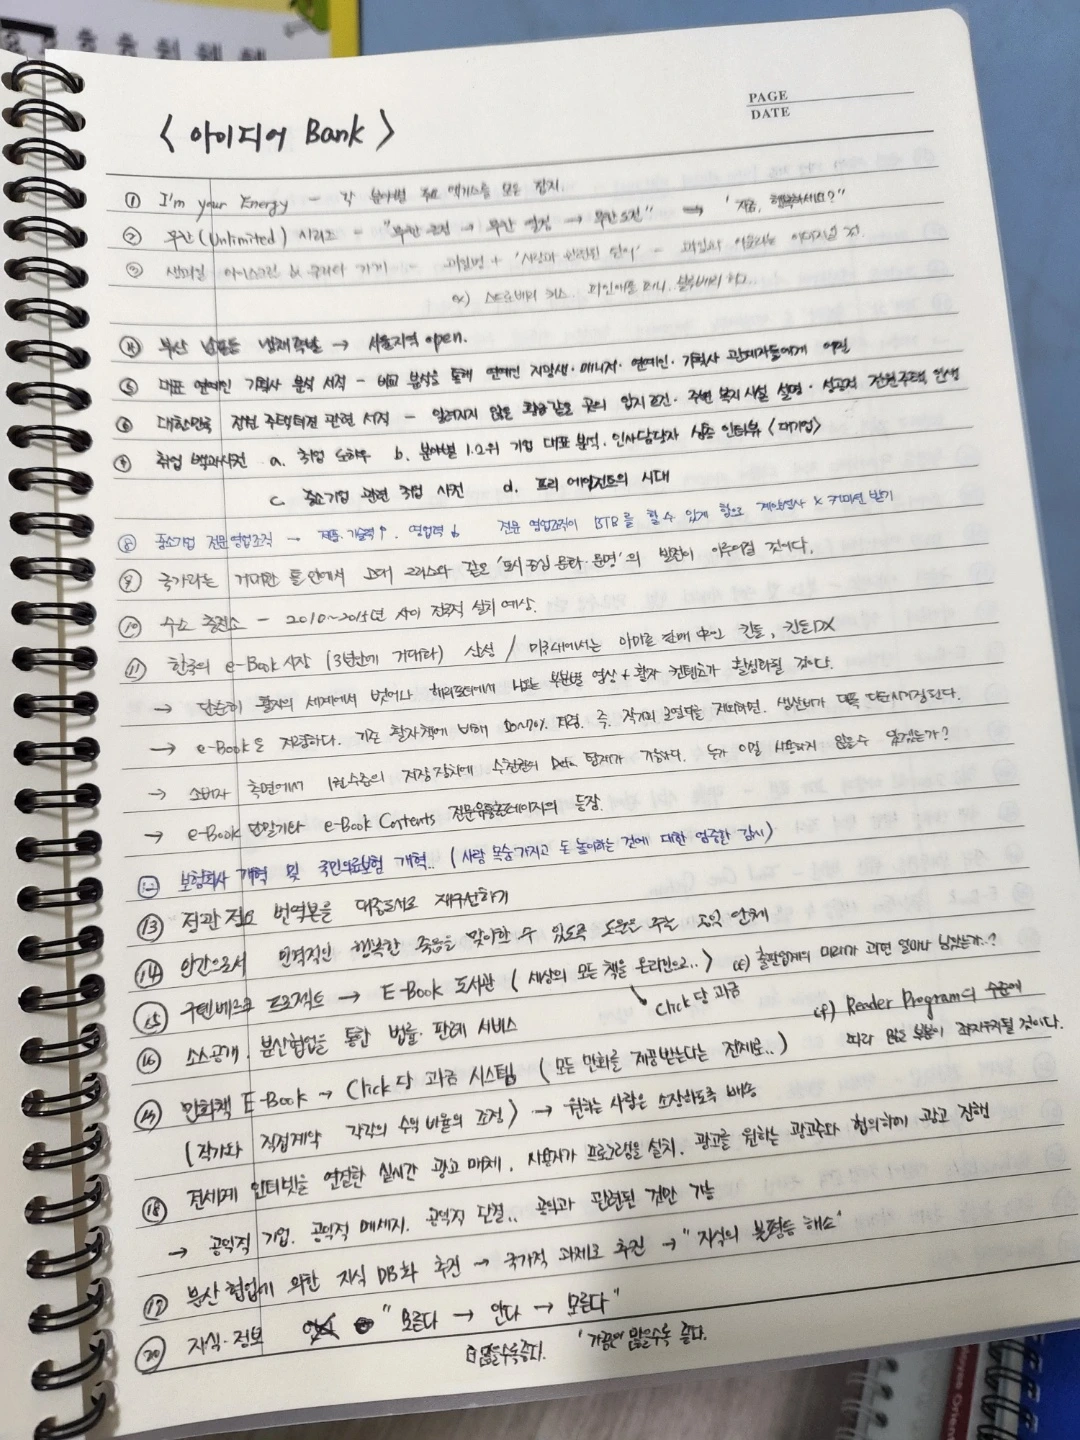 PAGE
DATE
< 아이디어 Bank >
① I'm your Energy - 각 분야별 주요 엑기스를 모은 잡지.
② 무한(Unlimited) 시리즈 - "무한 긍정 → 무한 열정 → 무한 도전" → '지금, 행복하세요?"
③ 생과일 아이스크림 & 가게 - 과일별 + '사랑과 관련된 단어' -
ex) 스트로베리 키스..
④ 부산 남포동 냉채족발 → 서울지역 open.
⑤ 대표 연예인 기획사 분석 서적 - 비교 분석을 통해 연예인 지망생·매니저·연예인·기획사 관계자들에게 어필
⑥ 대한민국 전원 주택터전 관련 서적 - 알려지지 않은 황금같은 곳의 입지조건·주변 복지시설 설명·성공적 전원주택 인생
⑦ 취업 백과사전 a. 취업 노하우 b. 분야별 1.2위 기업 대표 분석·인사담당자 심층 인터뷰 <대기업>
c. 중소기업 관련 취업 사전 d. 프리 에이전트의 시대
⑧ 중소기업 전문영업조직 → 제품·기술력↑. 영업력↓ 전문 영업조직이 BTB를 할 수 있게 함으로 받기
⑨ 국가라는 거대한 틀 안에서 고대 그리스와 같은 '도시중심 문화·문명'의 발전이 이루어질 것이다.
⑩ 수소 충전소 - 2010~2015년 사이 전국적 설치 예상.
⑪ 한국의 e-Book 시장 (3년안에 거대화) 삼성 / 미국내에서는 이미 판매 中인 킨들, 킨들DX
→ 단순히 활자의 세계에서 벗어나 부분별 영상 + 활자 컨텐츠가 활성화될 것이다.
→ e-Book은 저렴하다. 기존 활자책에 비해 저렴. 즉, 작가의 로열티를 제외하면. 생산비가 대폭
→ 소비자 측면에서 1권수준의 저장장치에 수천권의 Data 탑재가 가능하다. 누가 이걸 사용하지 않을 수 있겠는가?
→ e-Book 단말기와 e-Book Contents 전문유통 등장.
⑫ 보험회사 개혁 및 국민의료보험 개혁.. (사람 목숨가지고 돈 놀이하는 것에 대한 엄중한 감시)
⑬ 정관 정요 번역본을 대중도서로 재구성하기
⑭ 인간으로서 인격적인 행복한 죽음을 맞이할 수 있도록 도움을 주는 공익 단체
⑮ 구텐베르크 프로젝트 → E-Book 도서관 (세상의 모든 책을 온라인으로..) cf) 출판업계의 미래가 과연 얼마나 남았는가..?
↘ Click 당 과금
cf) Reader Program의 수준에
⑯ 소스공개. 분산협업을 통한 법률·판례 서비스
따라 많은 부분이 좌지우지될 것이다.
⑰ 만화책 E-Book → Click 당 과금 시스템 (모든 만화를 제공받는다는 전제로..)
(작가와 직접계약 각각의 수익비율의 조정) → 원하는 사람은 소장하도록 배송
⑱ 전세계 인터넷을 연결한 실시간 광고매체. 사용자가 프로그램을 설치. 광고를 원하는 광고주와 협의하에 광고 진행
→ 공익적 기업. 공익적 메세지. 공익적 단결.. 공익과 관련된 것만 가능
⑲ 분산 협업에 의한 지식 DB화 추진 → 국가적 과제로 추진 → "지식의 불평등 해소"
⑳ 지식·정보 "모른다 → 안다 → 모른다"
많을수록좋다. '가끔은 많을수록 좋다.